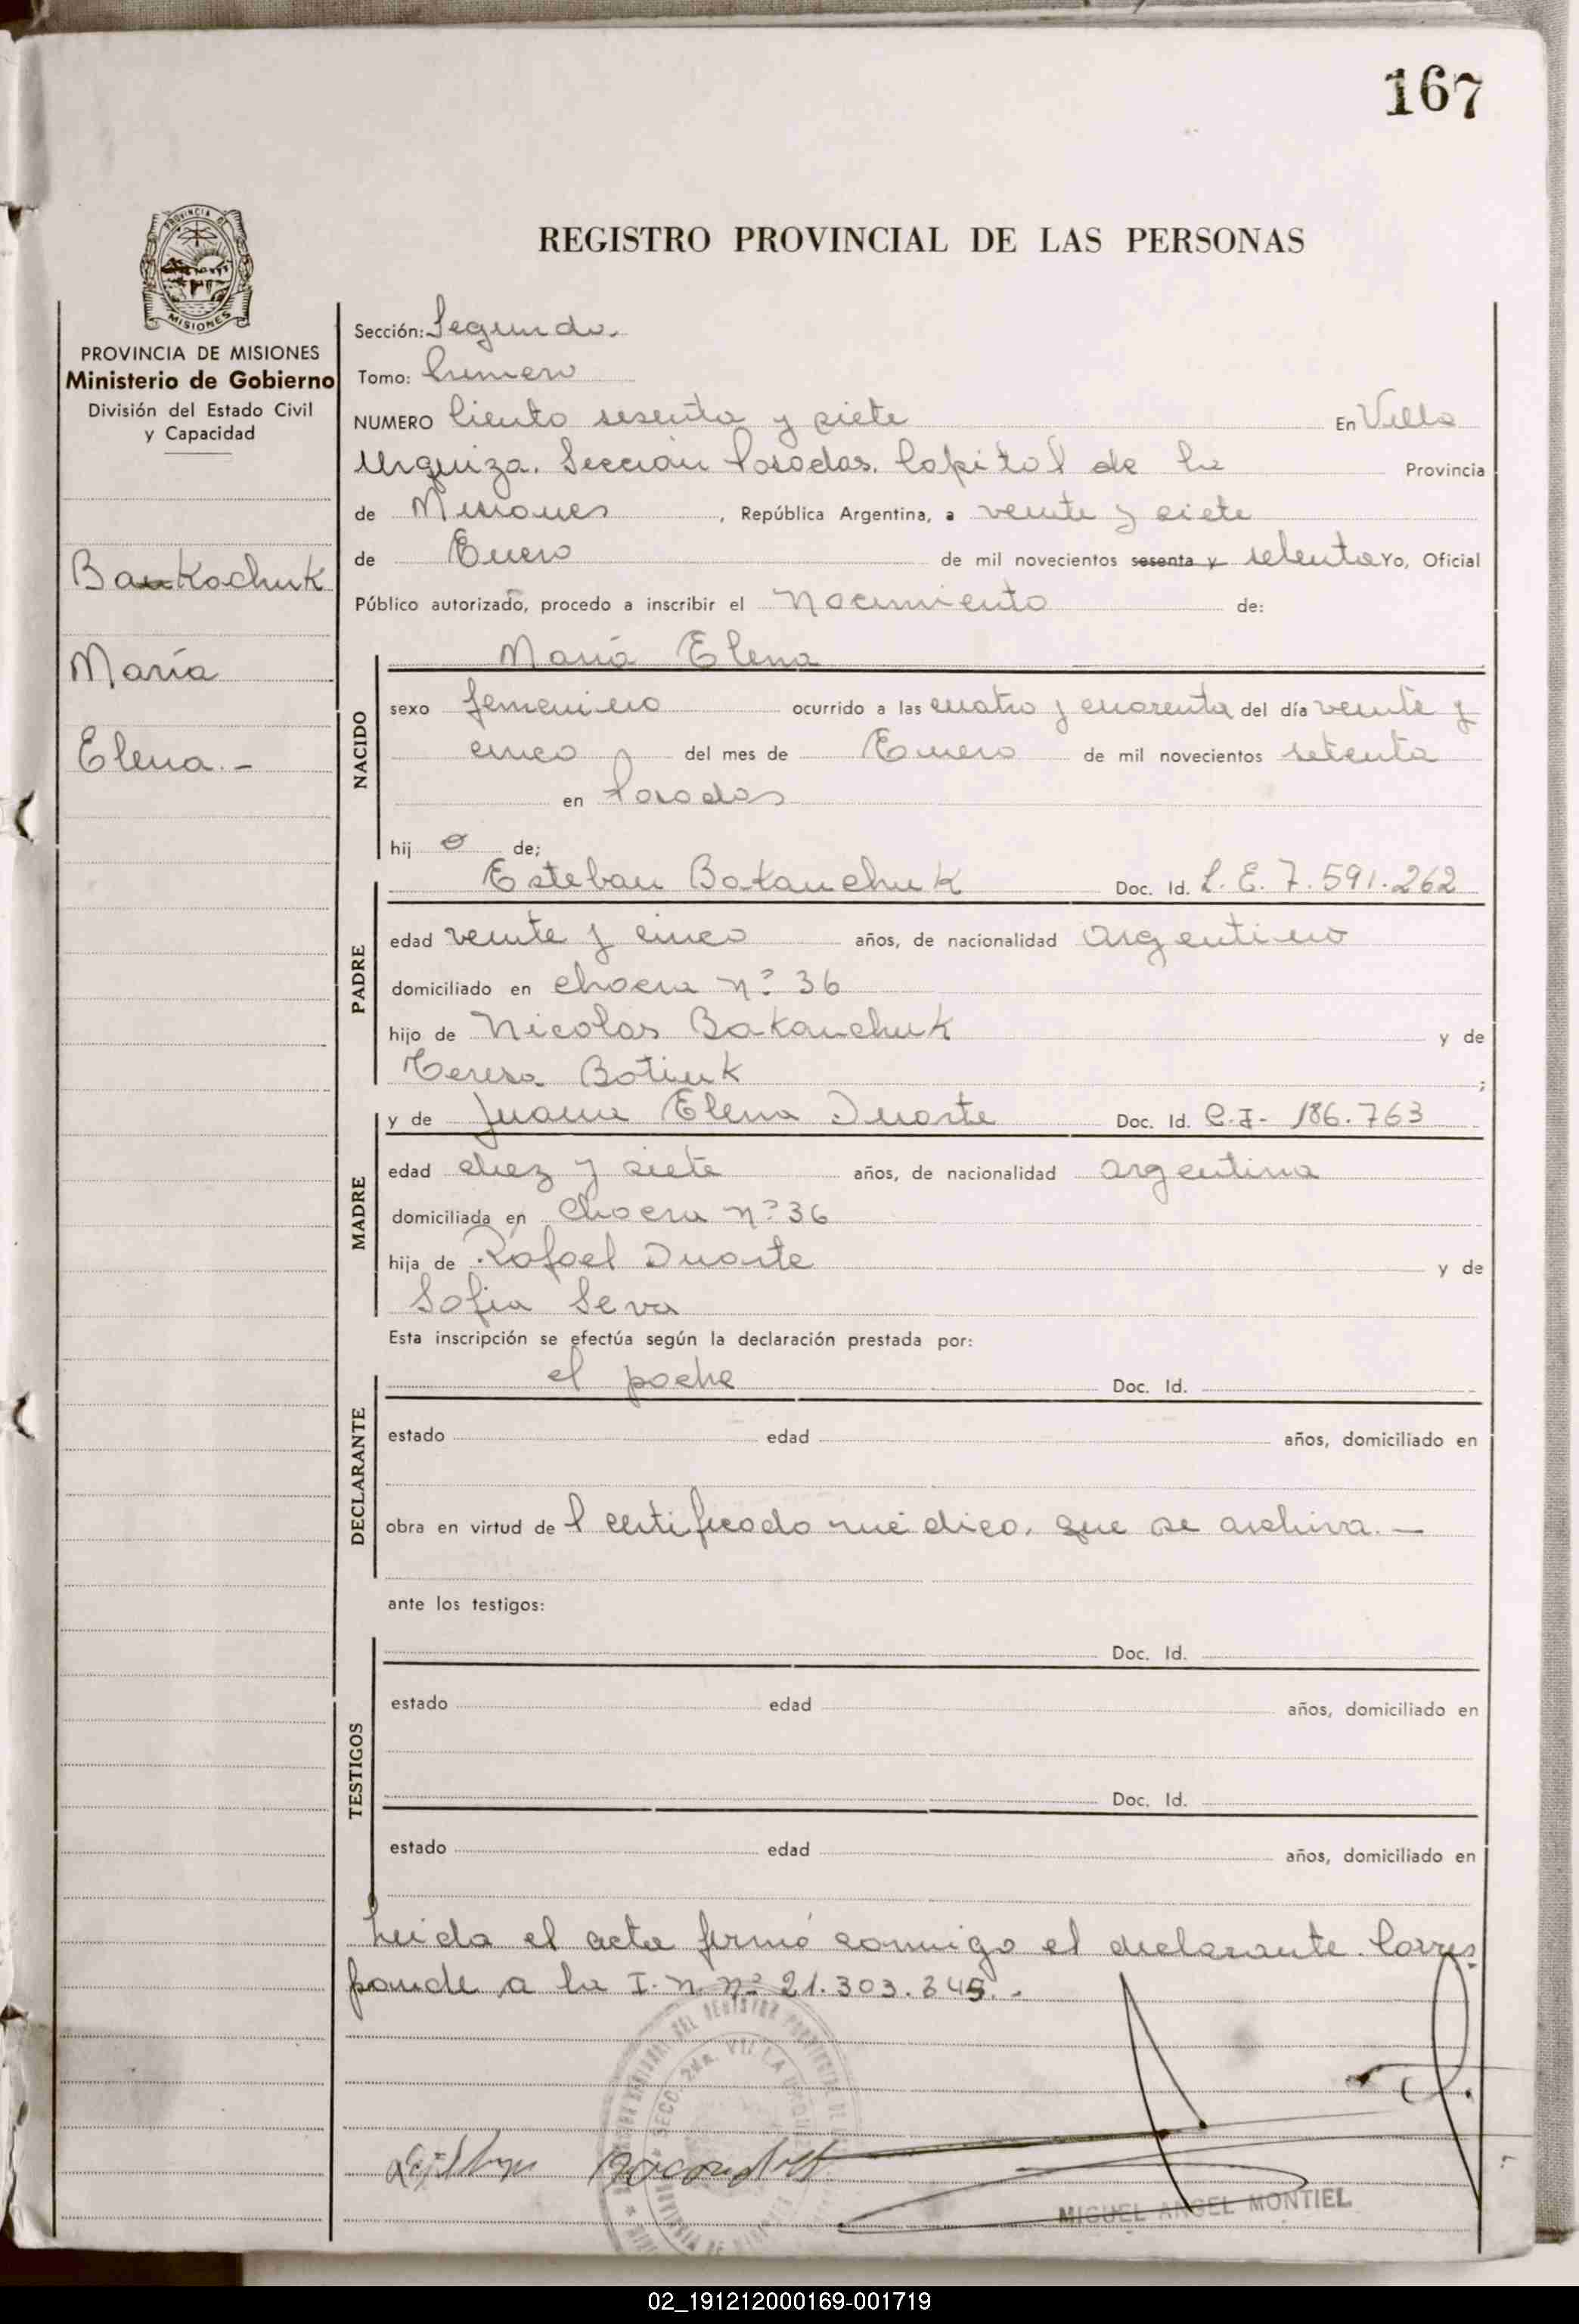 167
PROVINCIA DE
MISIONES
REGISTRO PROVINCIAL DE LAS PERSONAS
PROVINCIA DE MISIONES
Ministerio de Gobierno
División del Estado Civil
y Capacidad
Baukachuk
María
Elena.-
Sección: Segunda.
Tomo: Primero
NUMERO Ciento sesenta y siete En Villa
Urquiza. Sección Posadas. Capital de la Provincia
de Misiones, República Argentina, a veinte y siete
de Enero de mil novecientos sesenta y setenta Yo, Oficial
Público autorizado, procedo a inscribir el Nacimiento de:
NACIDO
María Elena
sexo femenino ocurrido a las cuatro y cuarenta del día veinte y
cinco del mes de Enero de mil novecientos setenta
en Posadas
hij a de;
PADRE
Esteban Bakanchuk Doc. Id. L.E. 7.591.262
edad veinte y cinco años, de nacionalidad argentino
domiciliado en chacra nº 36
hijo de Nicolas Bakanchuk y de
Teresa Botiuk ;
MADRE
y de Juana Elena Duarte Doc. Id. C.I- 186.763
edad diez y siete años, de nacionalidad argentina
domiciliada en Chacra nº 36
hija de Rafael Duarte y de
Sofia Seva
Esta inscripción se efectúa según la declaración prestada por:
DECLARANTE
el padre Doc. Id.
estado edad años, domiciliado en
obra en virtud de l certificado médico. que se archiva.-
ante los testigos:
TESTIGOS
Doc. Id.
estado edad años, domiciliado en
Doc. Id.
estado edad años, domiciliado en
Leida el acta firmó conmigo el declarante. Corres
ponde a la I. N nº 21.303.345.-
SECC. 2da. VILLA URQUIZA
MIGUEL ANGEL MONTIEL
02_191212000169-001719